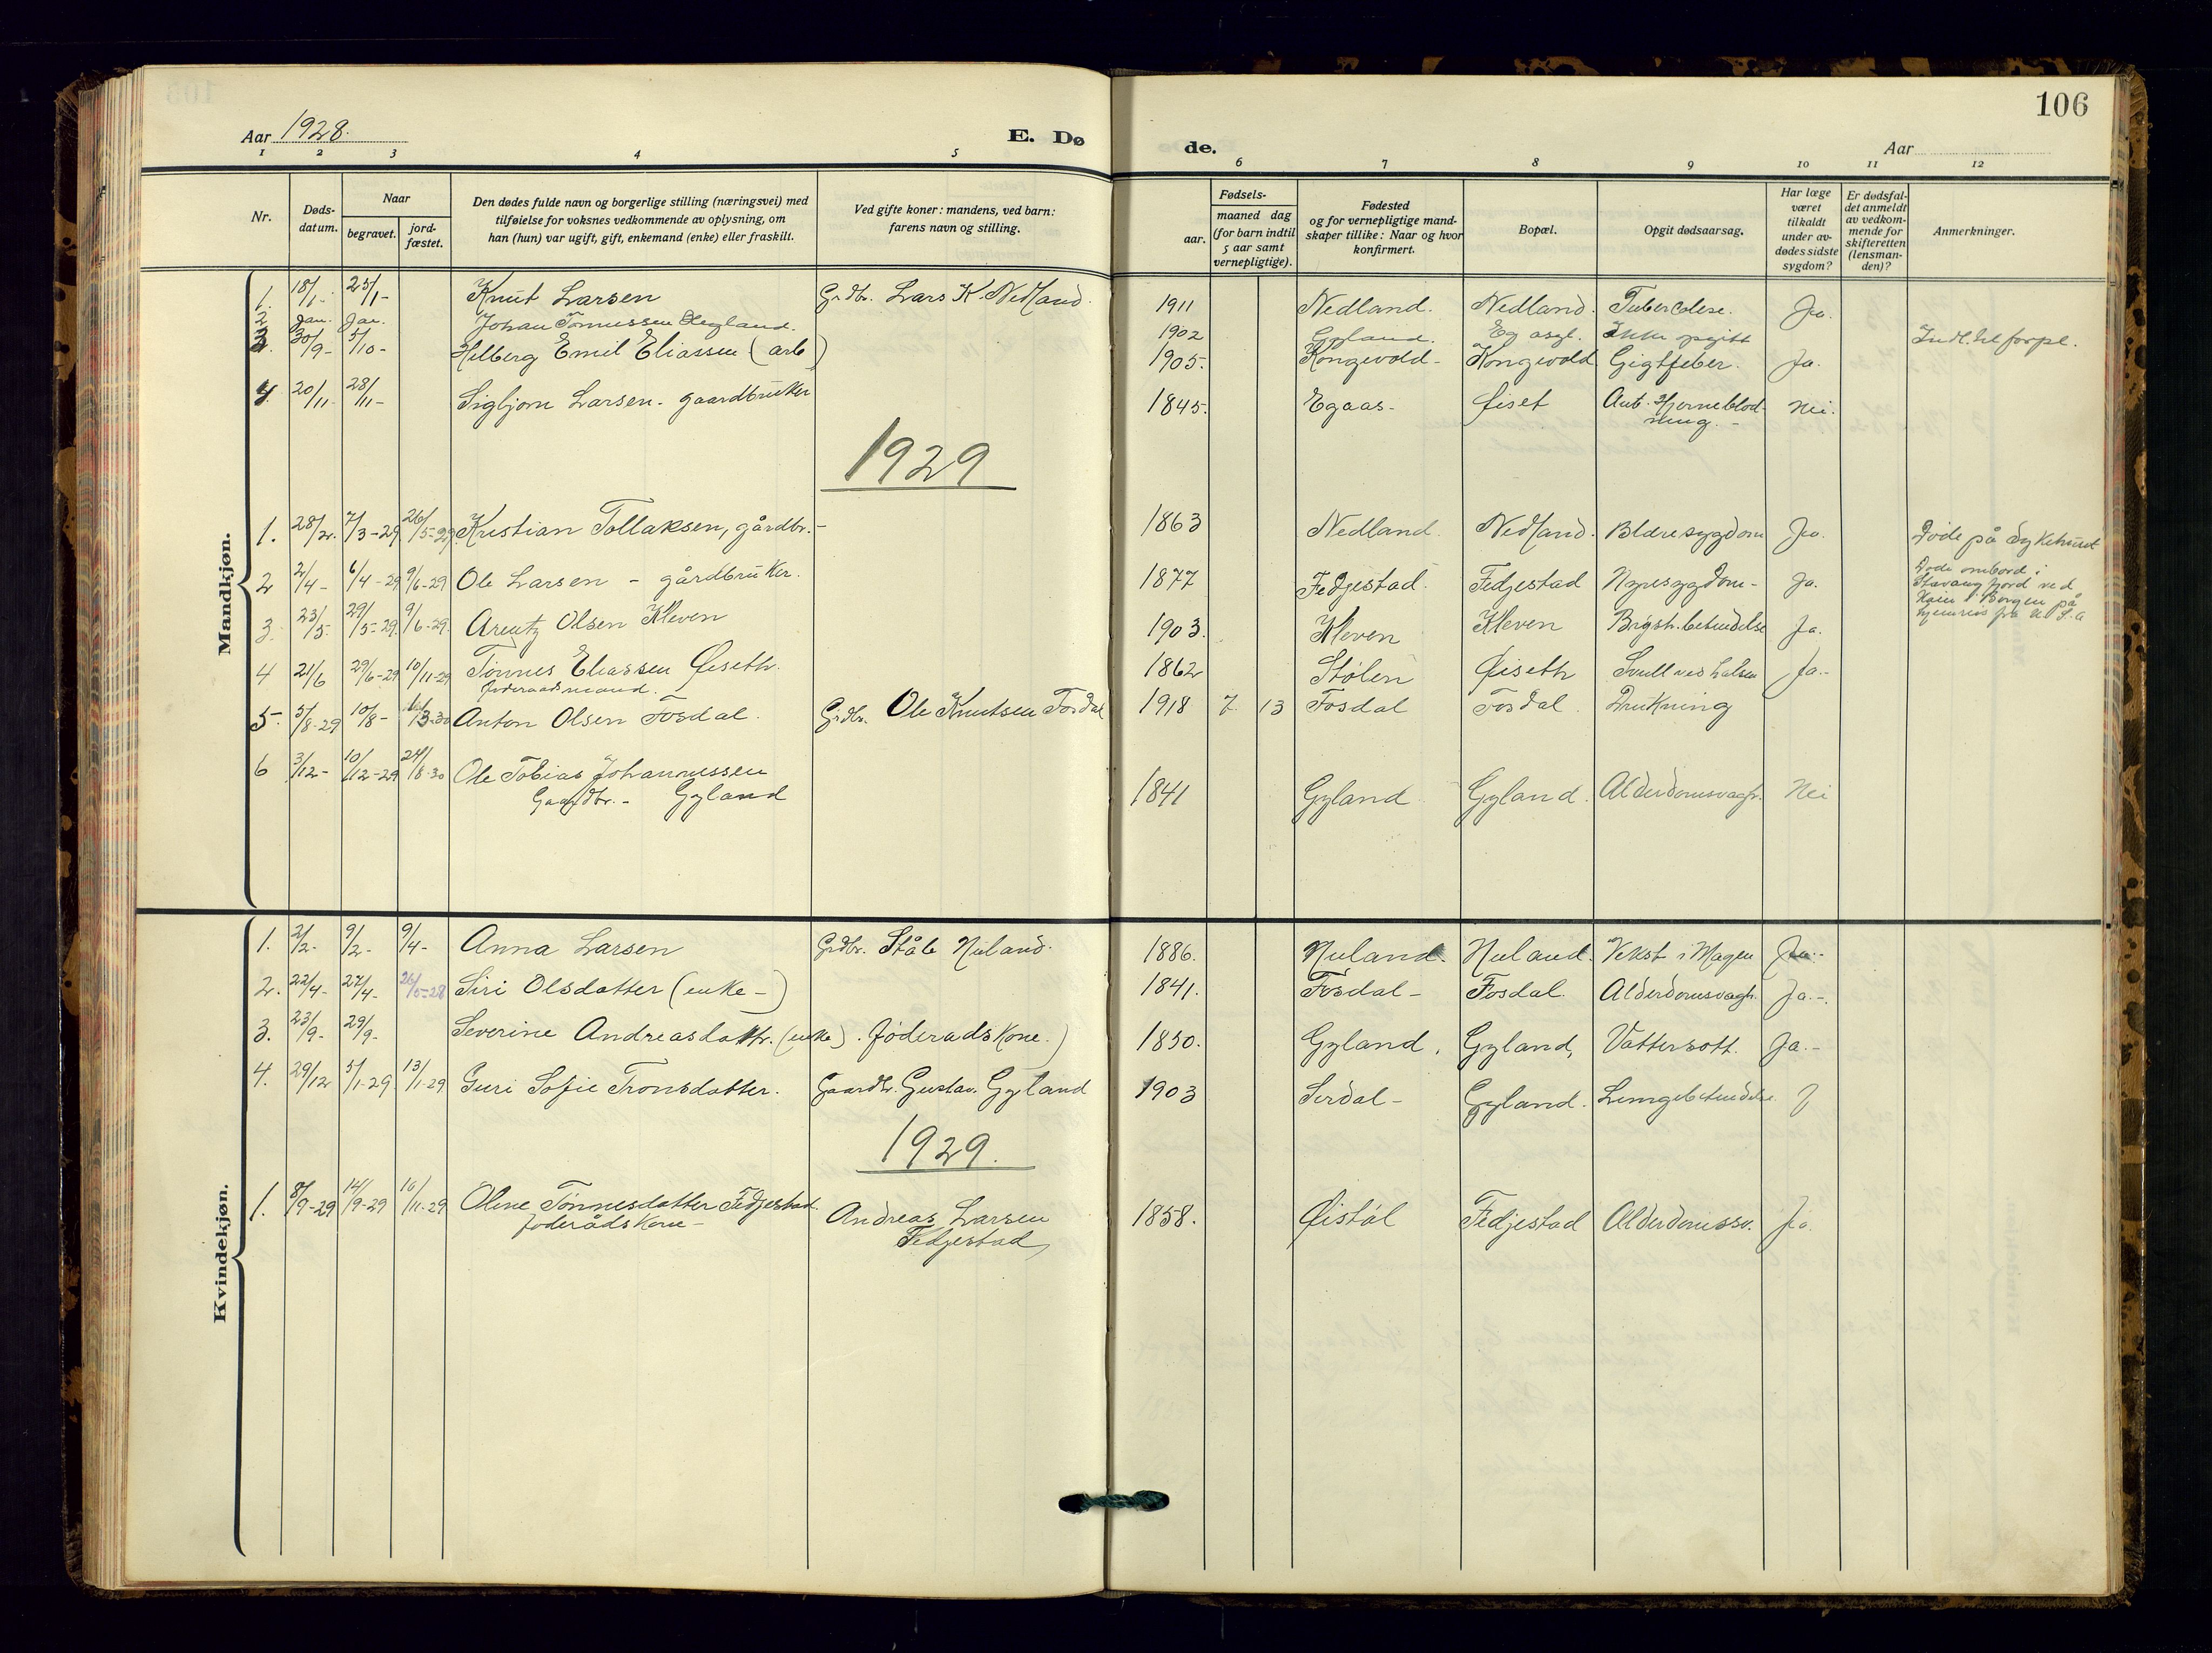 106
Aar 1928.
E. Dø
de.
Aar
1 2 3 4 5 6 7 8 9 10 11 12
Nr.
Døds-
datum.
Naar
begravet.
jord-
fæstet.
Den dødes fulde navn og borgerlige stilling (næringsvei) med
tilføielse for voksnes vedkommende av oplysning, om
han (hun) var ugift, gift, enkemand (enke) eller fraskilt.
Ved gifte koner: mandens, ved barn:
farens navn og stilling.
Fødsels-
aar.
maaned dag
(for barn indtil
5 aar samt
vernepligtige).
Fødested
og for vernepligtige mand-
skaper tillike: Naar og hvor
konfirmert.
Bopæl.
Opgit dødsaarsag.
Har læge
været
tilkaldt
under av-
dødes sidste
sygdom?
Er dødsfal-
det anmeldt
av vedkom-
mende for
skifteretten
(lensman-
den)?
Anmerkninger.
Mandkjøn.
1. 18/1- 25/1- Knut Larsen Grdbr. Lars K. Nedland. 1911 Nedland. Nedland. Tubercolose. Ja.
2 Jan. Jan. Johan Tønnessen 1902 Gyland. Eg asyl. Ikke opgitt
3. 30/9- 5/10- Helberg Emil Eliassen (arb) 1905. Kongevold- Kongevold Gigtfeber. Ja.
4 20/11 28/11- Sigbjørn Larsen- gaardbruker 1845. Egaas- Øiset Ant. Hjerneblød-
ning.- Nei.
1929
1. 28/2. 7/3-29 26/5-29 Kristian Tollaksen, gårdbr.- 1863 Nedland. Nedland. Blæresygdom Ja. Døde på Sykehuset
2 2/4- 6/4-29 9/6-29 Ole Larsen - gårdbruker. 1877 Fedjestad. Fedjestad Nyresygdom- Ja. Døde ombord i
Stavangfjord ved
Kaien i Bergen på
hjemreis fra U.S.A
3. 23/5. 29/5-29. 9/6-29. Arentz Olsen Kleven 1903. Kleven Kleven Brysth.betendelse Ja.
4 21/6 29/6-29 10/11-29 Tønnes Eliassen Øiseth.
føderaadsmand. 1862 Stølen Øiseth Svull ved halsen Ja.-
5- 5/8-29 10/8- Anton Olsen Fosdal. Grdbr. Ole Knutsen Fosdal 1918 7 13 Fosdal Fosdal. Drukning
6 3/12- 10/12-29 24/8-30 Ole Tobias Johannessen
Gaardbr.- Gyland 1841 Gyland Gyland. Alderdomsvagh. Nei
Kvindekjøn.
1. 2/2- 9/2- 9/4- Anna Larsen Grdbr. Ståle Nuland. 1886. Nuland. Nuland. Vekst i Magen Ja.-
2. 22/4- 27/4- 26/5-28 Siri Olsdatter (enke-) 1841. Fosdal- Fosdal. Alderdomsvagh. Ja.-.
3. 23/9- 29/9- Severine Andreasdattr. (enke). føderadskone.) 1850. Gyland. Gyland, Vattersott. Ja.-
4. 29/12 5/1-29. 13/1-29 Guri Sofie Tronsdatter. Gaardbr. Gustav. Gyland 1903 Sirdal- Gyland. Lungebetendelse ?
1929.
1. 8/9-29 14/9-29 10/11-29 Olene Tønnesdatter Fedjestad.
føderådskone- Andreas Larsen
Fedjestad 1858. Øistøl Fedjestad Alderdomssv. Ja.